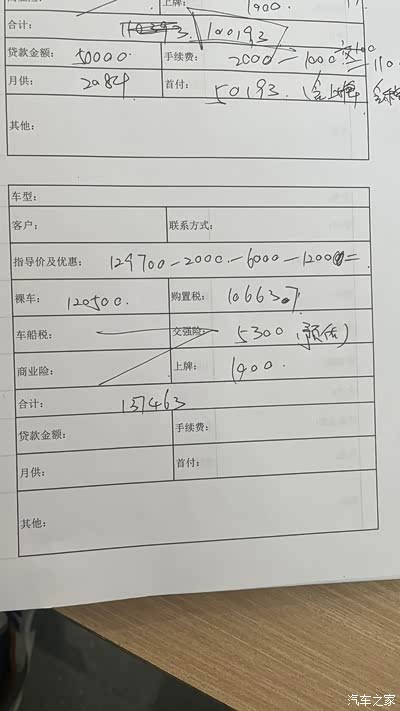 上牌： 1000.
合计： 100193
贷款金额： 50000 手续费： 2000-1000
月供： 2084 首付： 50193.
其他：
车型：
客户： 联系方式：
指导价及优惠： 129700-2000-6000-1200=
裸车： 120500. 购置税： 10663.7
车船税： 交强险： 5300 (预估)
商业险： 上牌： 1000.
合计： 137463
贷款金额： 手续费：
月供： 首付：
其他：
汽车之家